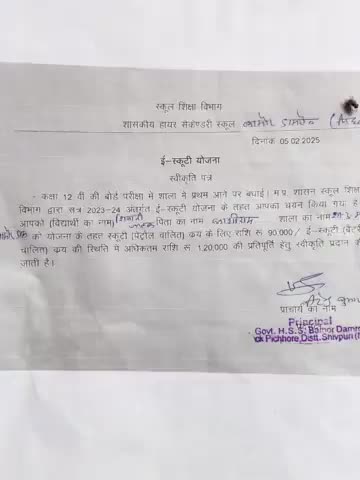 स्कूल शिक्षा विभाग
शासकीय हायर सेकेण्डरी स्कूल
दिनांक 05.02.2025
ई-स्कूटी योजना
स्वीकृति पत्र
कक्षा 12 वी की बोर्ड परीक्षा में शाला में प्रथम आने पर बधाई। म.प्र. शासन स्कूल शिक्षा
विभाग द्वारा सत्र 2023-24 अंतर्गत ई-स्कूटी योजना के तहत आपका चयन किया गया है
आपको (विद्यार्थी का नाम) पिता का नाम शाला का नाम
को योजना के तहत स्कूटी (पेट्रोल चालित) क्रय के लिए राशि रू 90,000/ ई-स्कूटी (बैटरी
चालित) क्रय की स्थिति में अधिकतम राशि रू 1,20,000 की प्रतिपूर्ति हेतु स्वीकृति प्रदान की
जाती है।
प्राचार्य का नाम
Principal
Govt. H.S.S. Bamor Damr
ck Pichhore, Distt. Shivpuri (